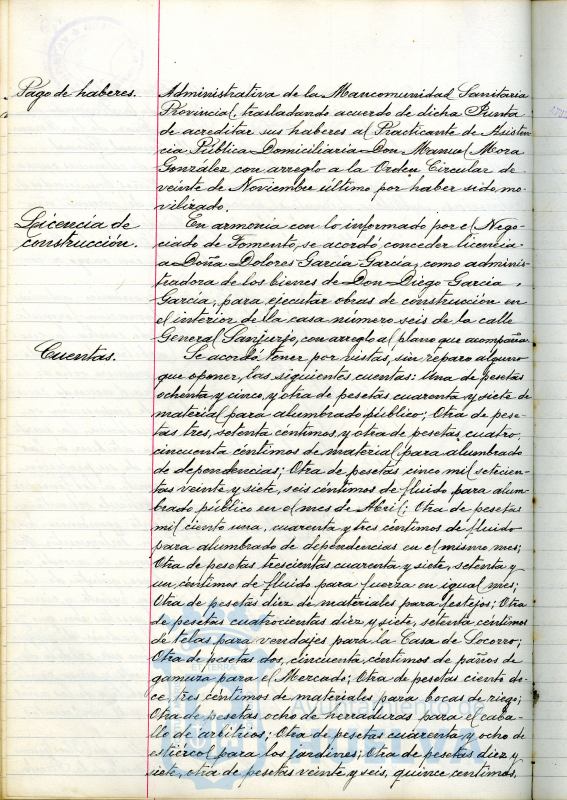 Pago de haberes.
Administrativa de la Mancomunidad Sanitaria
Provincial, trasladando acuerdo de dicha Junta
de acreditar sus haberes al Practicante de Asisten-
cia Pública Domiciliaria Don Manuel Mora
González, con arreglo a la Orden Circular de
veinte de Noviembre último por haber sido mo-
vilizado.
Licencia de
construcción.
En armonía con lo informado por el Nego-
ciado de Fomento, se acordó conceder licencia
a Doña Dolores García García, como adminis-
tradora de los bienes de Don Diego García
García, para ejecutar obras de construcción en
el interior de la casa número seis de la calle
General Sanjurjo, con arreglo al plano que acompaña.
Cuentas.
Se acordó tener por vistas, sin reparo alguno
que oponer, las siguientes cuentas: Una de pesetas
ochenta y cinco, y otra de pesetas cuarenta y siete de
material para alumbrado público; Otra de pese-
tas tres, setenta céntimos, y otra de pesetas cuatro,
cincuenta céntimos de material para alumbrado
de dependencias; Otra de pesetas cinco mil setecien-
tas veinte y siete, seis céntimos de fluido para alum-
brado público en el mes de Abril; Otra de pesetas
mil ciento una, cuarenta y tres céntimos de fluido
para alumbrado de dependencias en el mismo mes;
Otra de pesetas trescientas cuarenta y siete, setenta y
un céntimos de fluido para fuerza en igual mes;
Otra de pesetas diez de materiales para festejos; Otra
de pesetas cuatrocientas diez y siete, setenta céntimos
de telas para vendajes para la Casa de Socorro;
Otra de pesetas dos, cincuenta céntimos de paños de
gamuza para el Mercado; Otra de pesetas ciento do-
ce, tres céntimos de materiales para bocas de riego;
Otra de pesetas ocho de herraduras para el caba-
llo de arbitrios; Otra de pesetas cuarenta y ocho de
estiércol para los jardines; Otra de pesetas diez y
siete, otra de pesetas veinte y seis, quince céntimos,
Ayuntamiento de